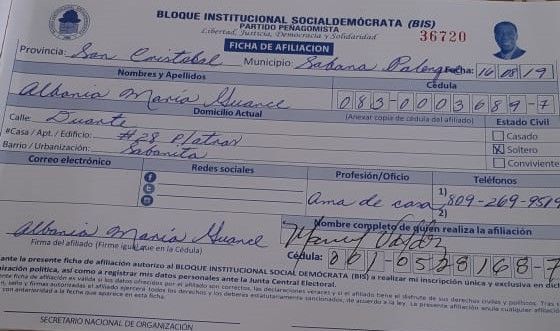 BLOQUE INSTITUCIONAL SOCIALDEMÓCRATA (BIS)
PARTIDO PEÑAGOMISTA
Libertad, Justicia, Democracia y Solidaridad
36720
FICHA DE AFILIACION
Provincia: San Cristobal Municipio: Sabana Palenque Fecha: 16/08/19
Nombres y Apellidos Cédula
Albania María 083-0003689-7
Domicilio Actual (Anexar copia de cédula del afiliado)
Calle: Duarte Estado Civil
Casado
#Casa / Apt. / Edificio: #28 X Soltero
Barrio / Urbanización: Sabanita Conviviente
Correo electrónico Redes sociales Profesión/Oficio Teléfonos
Ama de casa 1) 809-269-9519
2)
Nombre completo de quien realiza la afiliación
Albania María
Firma del afiliado (Firme igual que en la Cédula) Cédula: 001-0528168-7
ante la presente ficha de afiliación autorizo al BLOQUE INSTITUCIONAL SOCIAL DEMÓCRATA (BIS) a realizar mi inscripción única y exclusiva en
organización política, así como a registrar mis datos personales ante la Junta Central Electoral.
SECRETARIO NACIONAL DE ORGANIZACIÓN